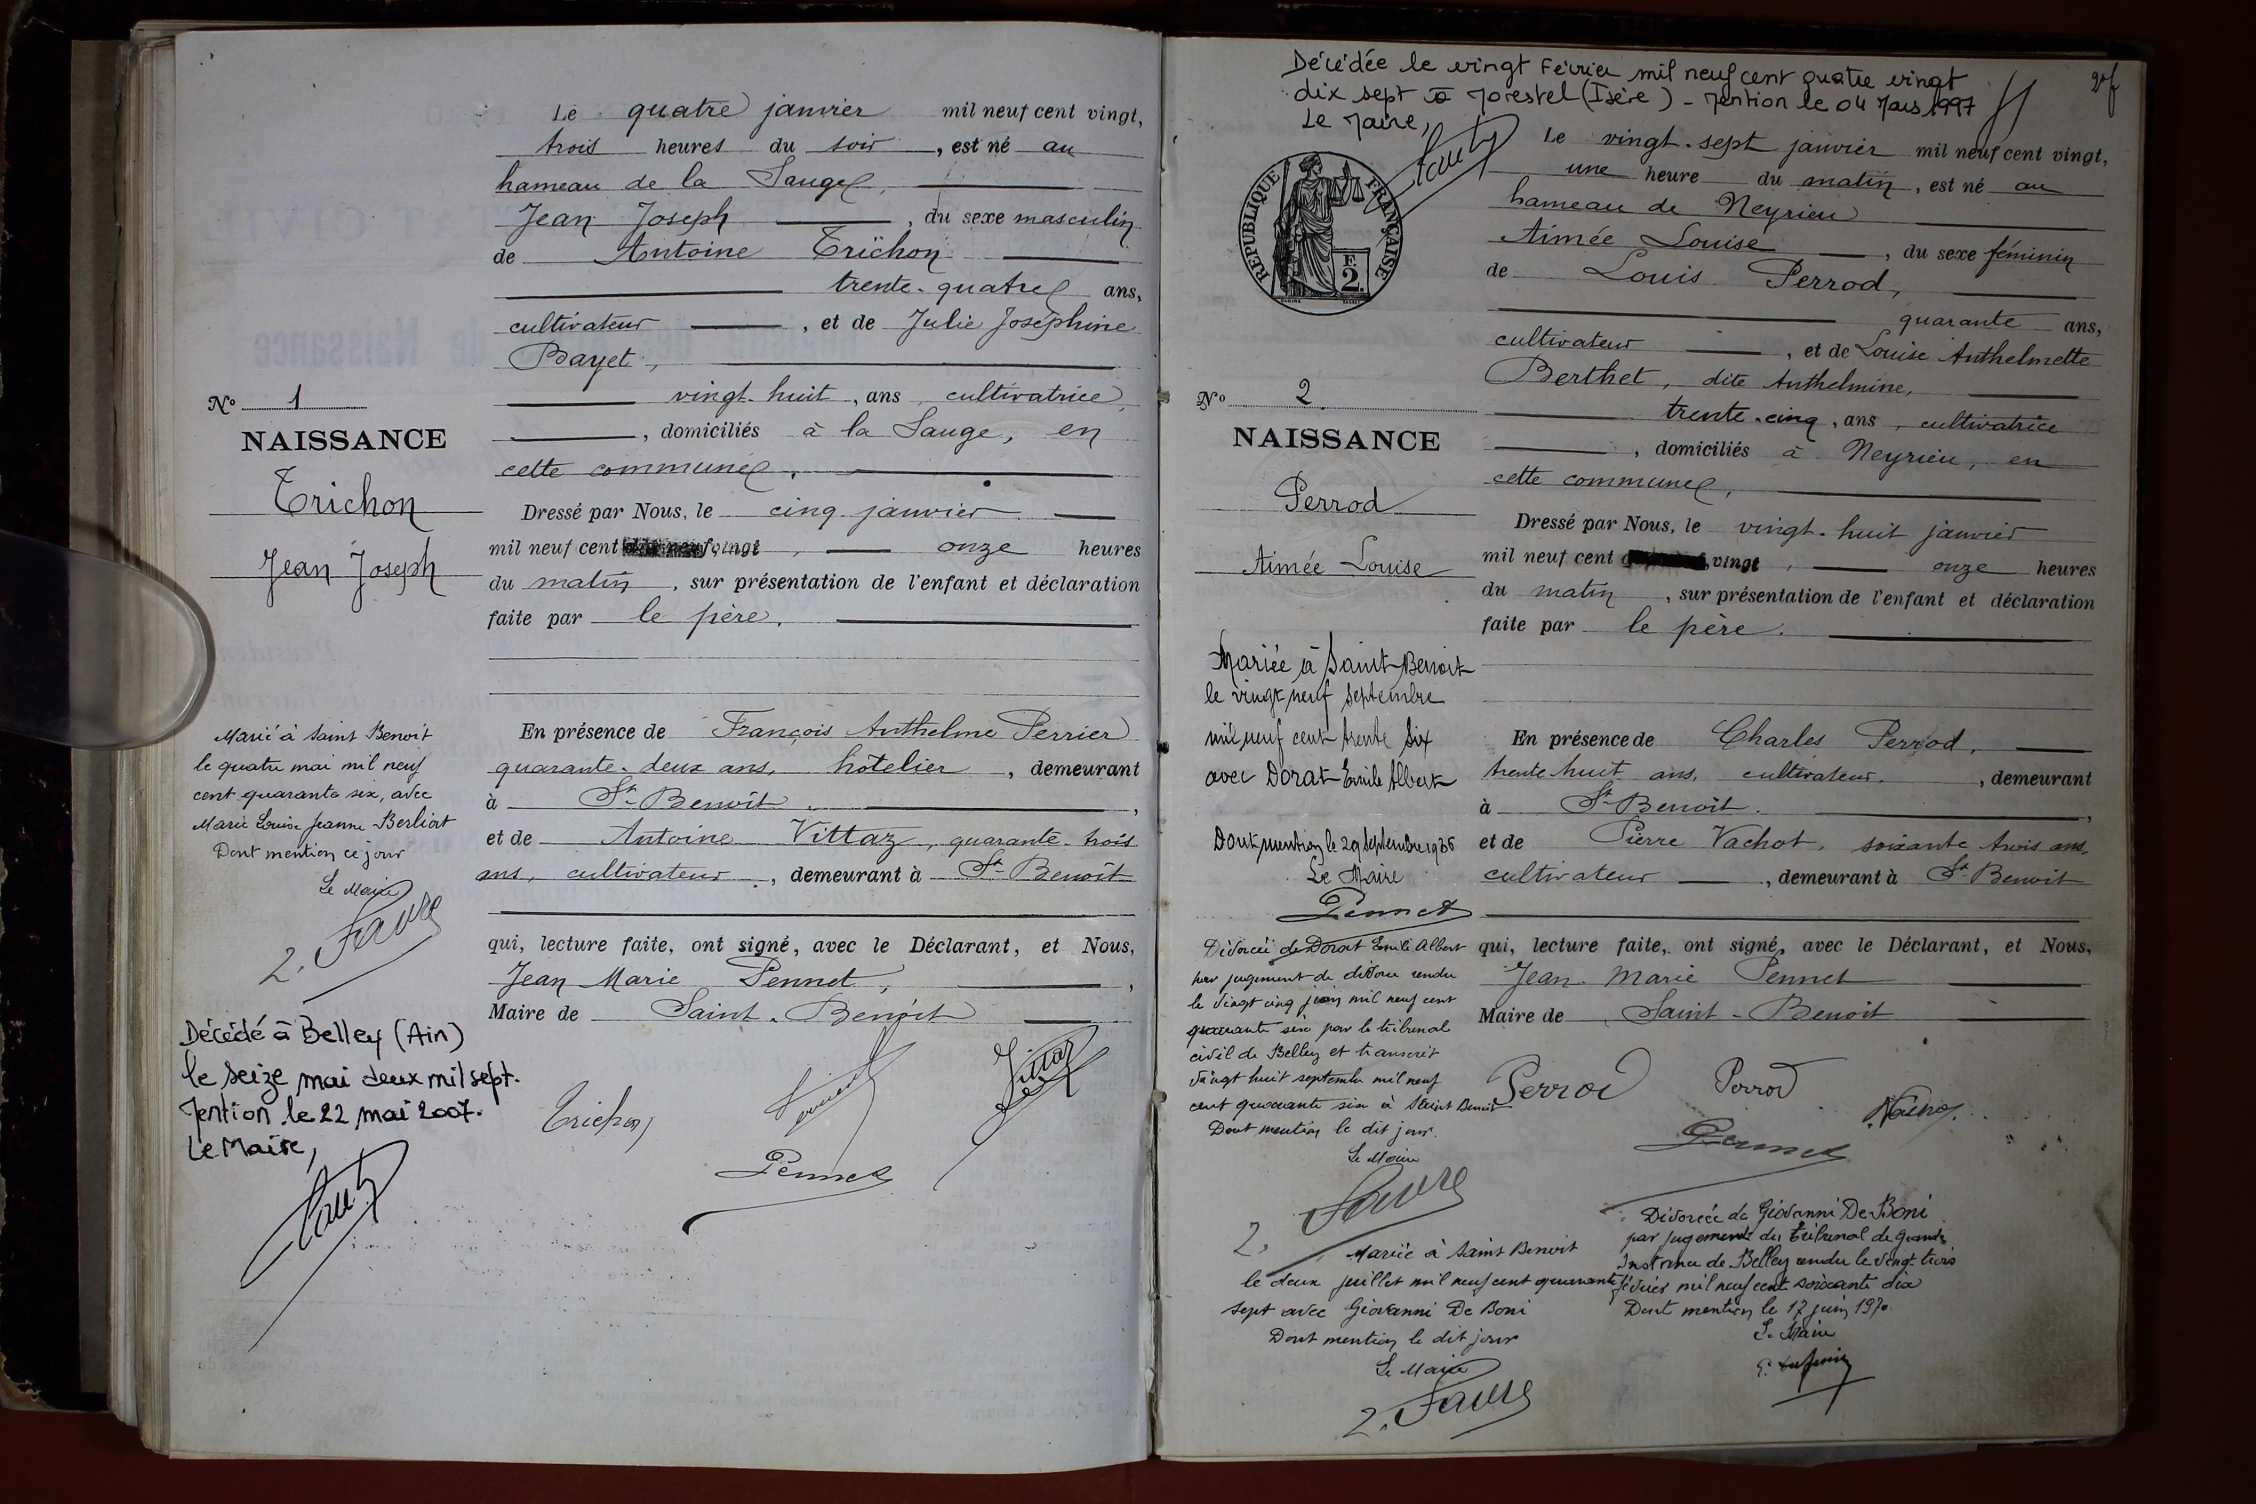 Le quatre janvier mil neuf cent vingt,
trois heures du soir, est né au
hameau de la Sauge,
Jean Joseph, du sexe masculin
de Antoine Trichon
trente-quatre ans,
cultivateur, et de Julie Joséphine
Bayet,
vingt-huit, ans, cultivatrice,
, domiciliés à la Sauge, en
cette commune.
Dressé par Nous, le cinq janvier
mil neuf cent vingt, onze heures
du matin, sur présentation de l'enfant et déclaration
faite par le père.
En présence de François Anthelme Perrier
quarante-deux ans, hôtelier, demeurant
à St-Benoît,
et de Antoine Vittaz, quarante-trois
ans, cultivateur, demeurant à St-Benoît
qui, lecture faite, ont signé, avec le Déclarant, et Nous,
Jean Marie Pennet,
Maire de Saint-Benoît
Trichon
Perrier
Vittaz
Pennet
No 1
NAISSANCE
Trichon
Jean Joseph
Marié à Saint Benoit
le quatre mai mil neuf
cent quarante six, avec
Marie Louise Jeanne Berliat
Dont mention ce jour
Le Maire
Favre
Décédé à Belley (Ain)
le seize mai deux mil sept.
Mention le 22 mai 2007.
Le Maire,
Décédée le vingt Février mil neuf cent quatre vingt
dix sept à Morestel (Isère) - Mention le 04 Mars 1997
Le Maire,
REPUBLIQUE FRANÇAISE
F.
2.
Le vingt-sept janvier mil neuf cent vingt,
une heure du matin, est né au
hameau de Neyrieu
Aimée Louise, du sexe féminin
de Louis Perrod,
quarante ans,
cultivateur, et de Louise Anthelmette
Berthet, dite Anthelmine,
trente-cinq, ans, cultivatrice
, domiciliés à Neyrieu, en
cette commune,
Dressé par Nous, le vingt-huit janvier
mil neuf cent vingt, onze heures
du matin, sur présentation de l'enfant et déclaration
faite par le père.
En présence de Charles Perrod,
trente huit ans, cultivateur, demeurant
à St-Benoît.
et de Pierre Vachot, soixante trois ans,
cultivateur, demeurant à St-Benoit
qui, lecture faite, ont signé, avec le Déclarant, et Nous,
Jean Marie Pennet
Maire de Saint-Benoît
Perrod
Perrod
Pennet
No 2
NAISSANCE
Perrod
Aimée Louise
Mariée à Saint-Benoit
le vingt neuf septembre
mil neuf cent trente six
avec Dorat Emile Albert
Dont mention le 29 septembre 1936
Le Maire
Pennet
Divorcée de Dorat Emile Albert
par jugement de divorce rendu
le vingt cinq juin mil neuf cent
quarante six par le tribunal
civil de Belley et transcrit
vingt huit septembre mil neuf
cent quarante six à Saint Benoit
Dont mention le dit jour.
Le Maire
Favre
Mariée à Saint Benoit
le deux juillet mil neuf cent quarante
sept avec Giovanni De Boni
Dont mention le dit jour
Le Maire
Favre
Divorcée de Giovanni De Boni
par jugement du Tribunal de Grande
Instance de Belley rendu le vingt trois
février mil neuf cent soixante dix
Dont mention le 17 juin 1970
Le Maire